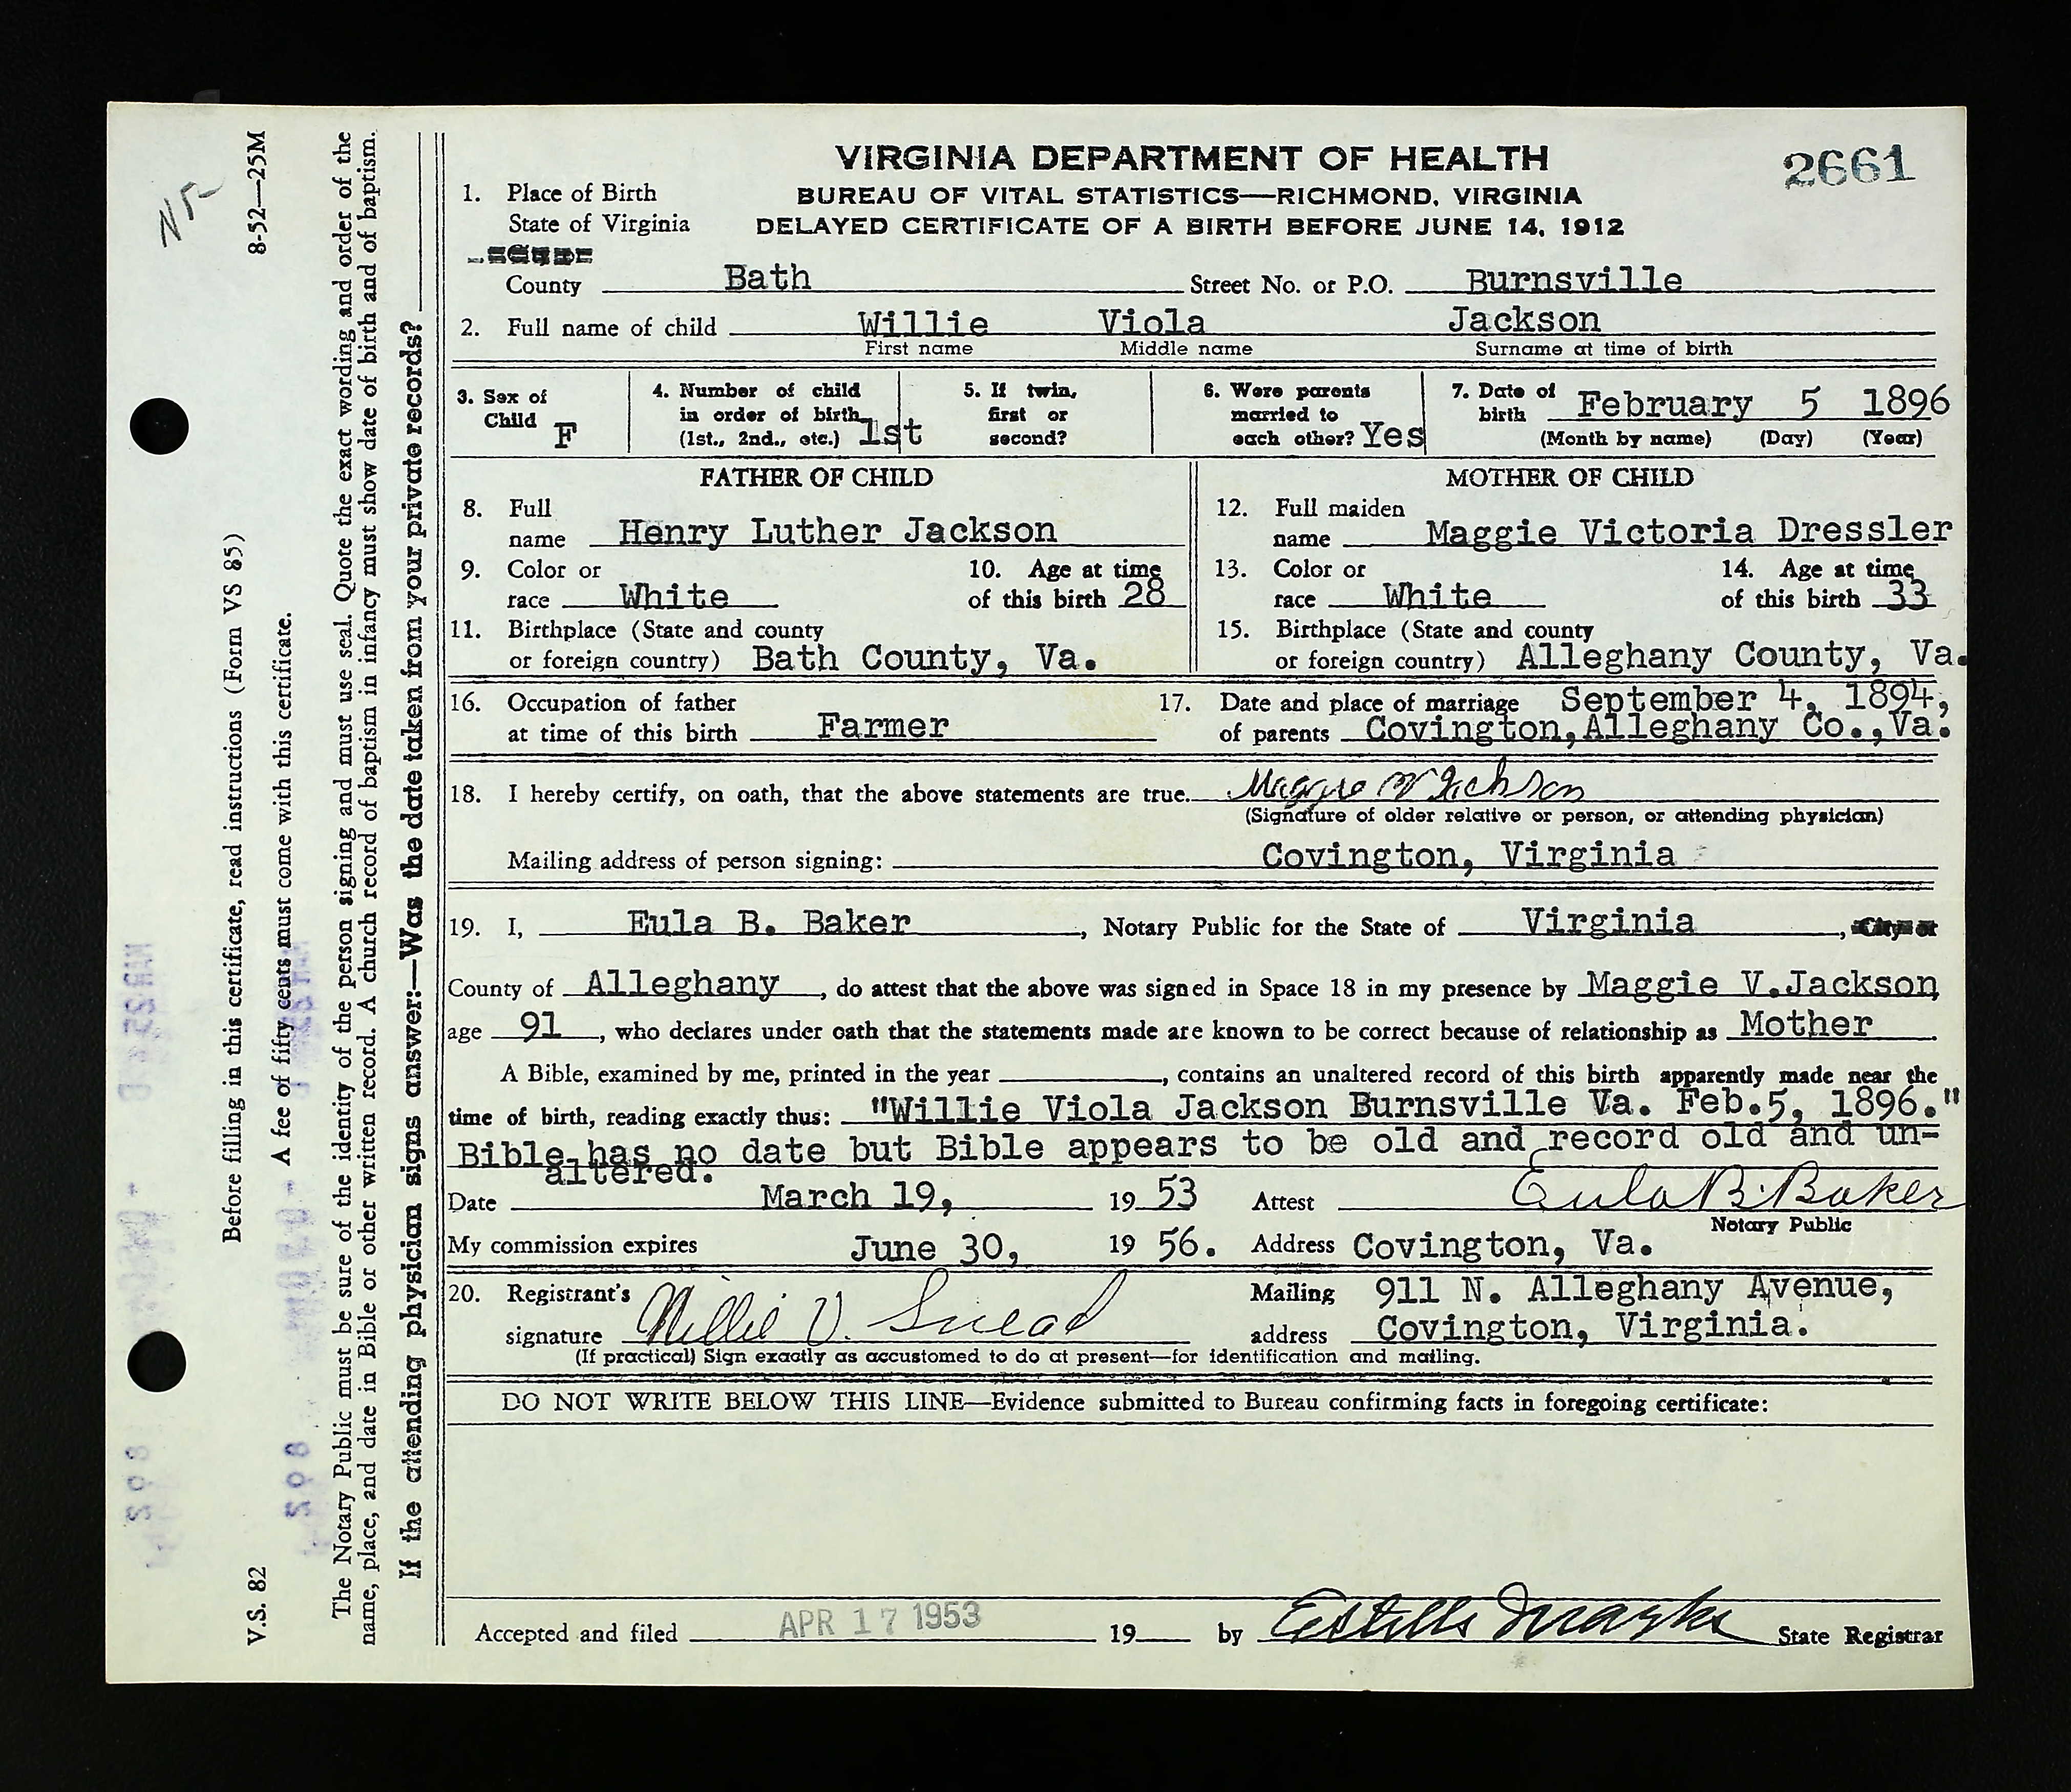 VIRGINIA DEPARTMENT OF HEALTH
2661
BUREAU OF VITAL STATISTICS—RICHMOND, VIRGINIA
DELAYED CERTIFICATE OF A BIRTH BEFORE JUNE 14, 1912
1. Place of Birth
State of Virginia
County Bath Street No. or P.O. Burnsville
2. Full name of child Willie Viola Jackson
First name Middle name Surname at time of birth
3. Sex of Child F
4. Number of child in order of birth (1st., 2nd., etc.) 1st
5. If twin, first or second?
6. Were parents married to each other? Yes
7. Date of birth February 5 1896
(Month by name) (Day) (Year)
FATHER OF CHILD
8. Full name Henry Luther Jackson
9. Color or race White
10. Age at time of this birth 28
11. Birthplace (State and county or foreign country) Bath County, Va.
MOTHER OF CHILD
12. Full maiden name Maggie Victoria Dressler
13. Color or race White
14. Age at time of this birth 33
15. Birthplace (State and county or foreign country) Alleghany County, Va.
16. Occupation of father at time of this birth Farmer
17. Date and place of marriage September 4, 1894,
of parents Covington, Alleghany Co., Va.
18. I hereby certify, on oath, that the above statements are true. Maggie V Jackson
(Signature of older relative or person, or attending physician)
Mailing address of person signing: Covington, Virginia
19. I, Eula B. Baker, Notary Public for the State of Virginia, City or
County of Alleghany, do attest that the above was signed in Space 18 in my presence by Maggie V. Jackson
age 91, who declares under oath that the statements made are known to be correct because of relationship as Mother.
A Bible, examined by me, printed in the year , contains an unaltered record of this birth apparently made near the
time of birth, reading exactly thus: "Willie Viola Jackson Burnsville Va. Feb.5, 1896."
Bible has no date but Bible appears to be old and record old and un-
altered.
Date March 19, 19 53 Attest Eula B. Baker
Notary Public
My commission expires June 30, 19 56. Address Covington, Va.
20. Registrant's signature Willie V. Snead
Mailing address 911 N. Alleghany Avenue,
Covington, Virginia.
(If practical) Sign exactly as accustomed to do at present—for identification and mailing.
DO NOT WRITE BELOW THIS LINE—Evidence submitted to Bureau confirming facts in foregoing certificate:
Accepted and filed APR 17 1953 19 by Estelle Marks State Registrar
V.S. 82
8-52—25M
Before filling in this certificate, read instructions (Form VS 85)
A fee of fifty cents must come with this certificate.
The Notary Public must be sure of the identity of the person signing and must use seal. Quote the exact wording and order of the
name, place, and date in Bible or other written record. A church record of baptism in infancy must show date of birth and of baptism.
If the attending physician signs answer:—Was the date taken from your private records?